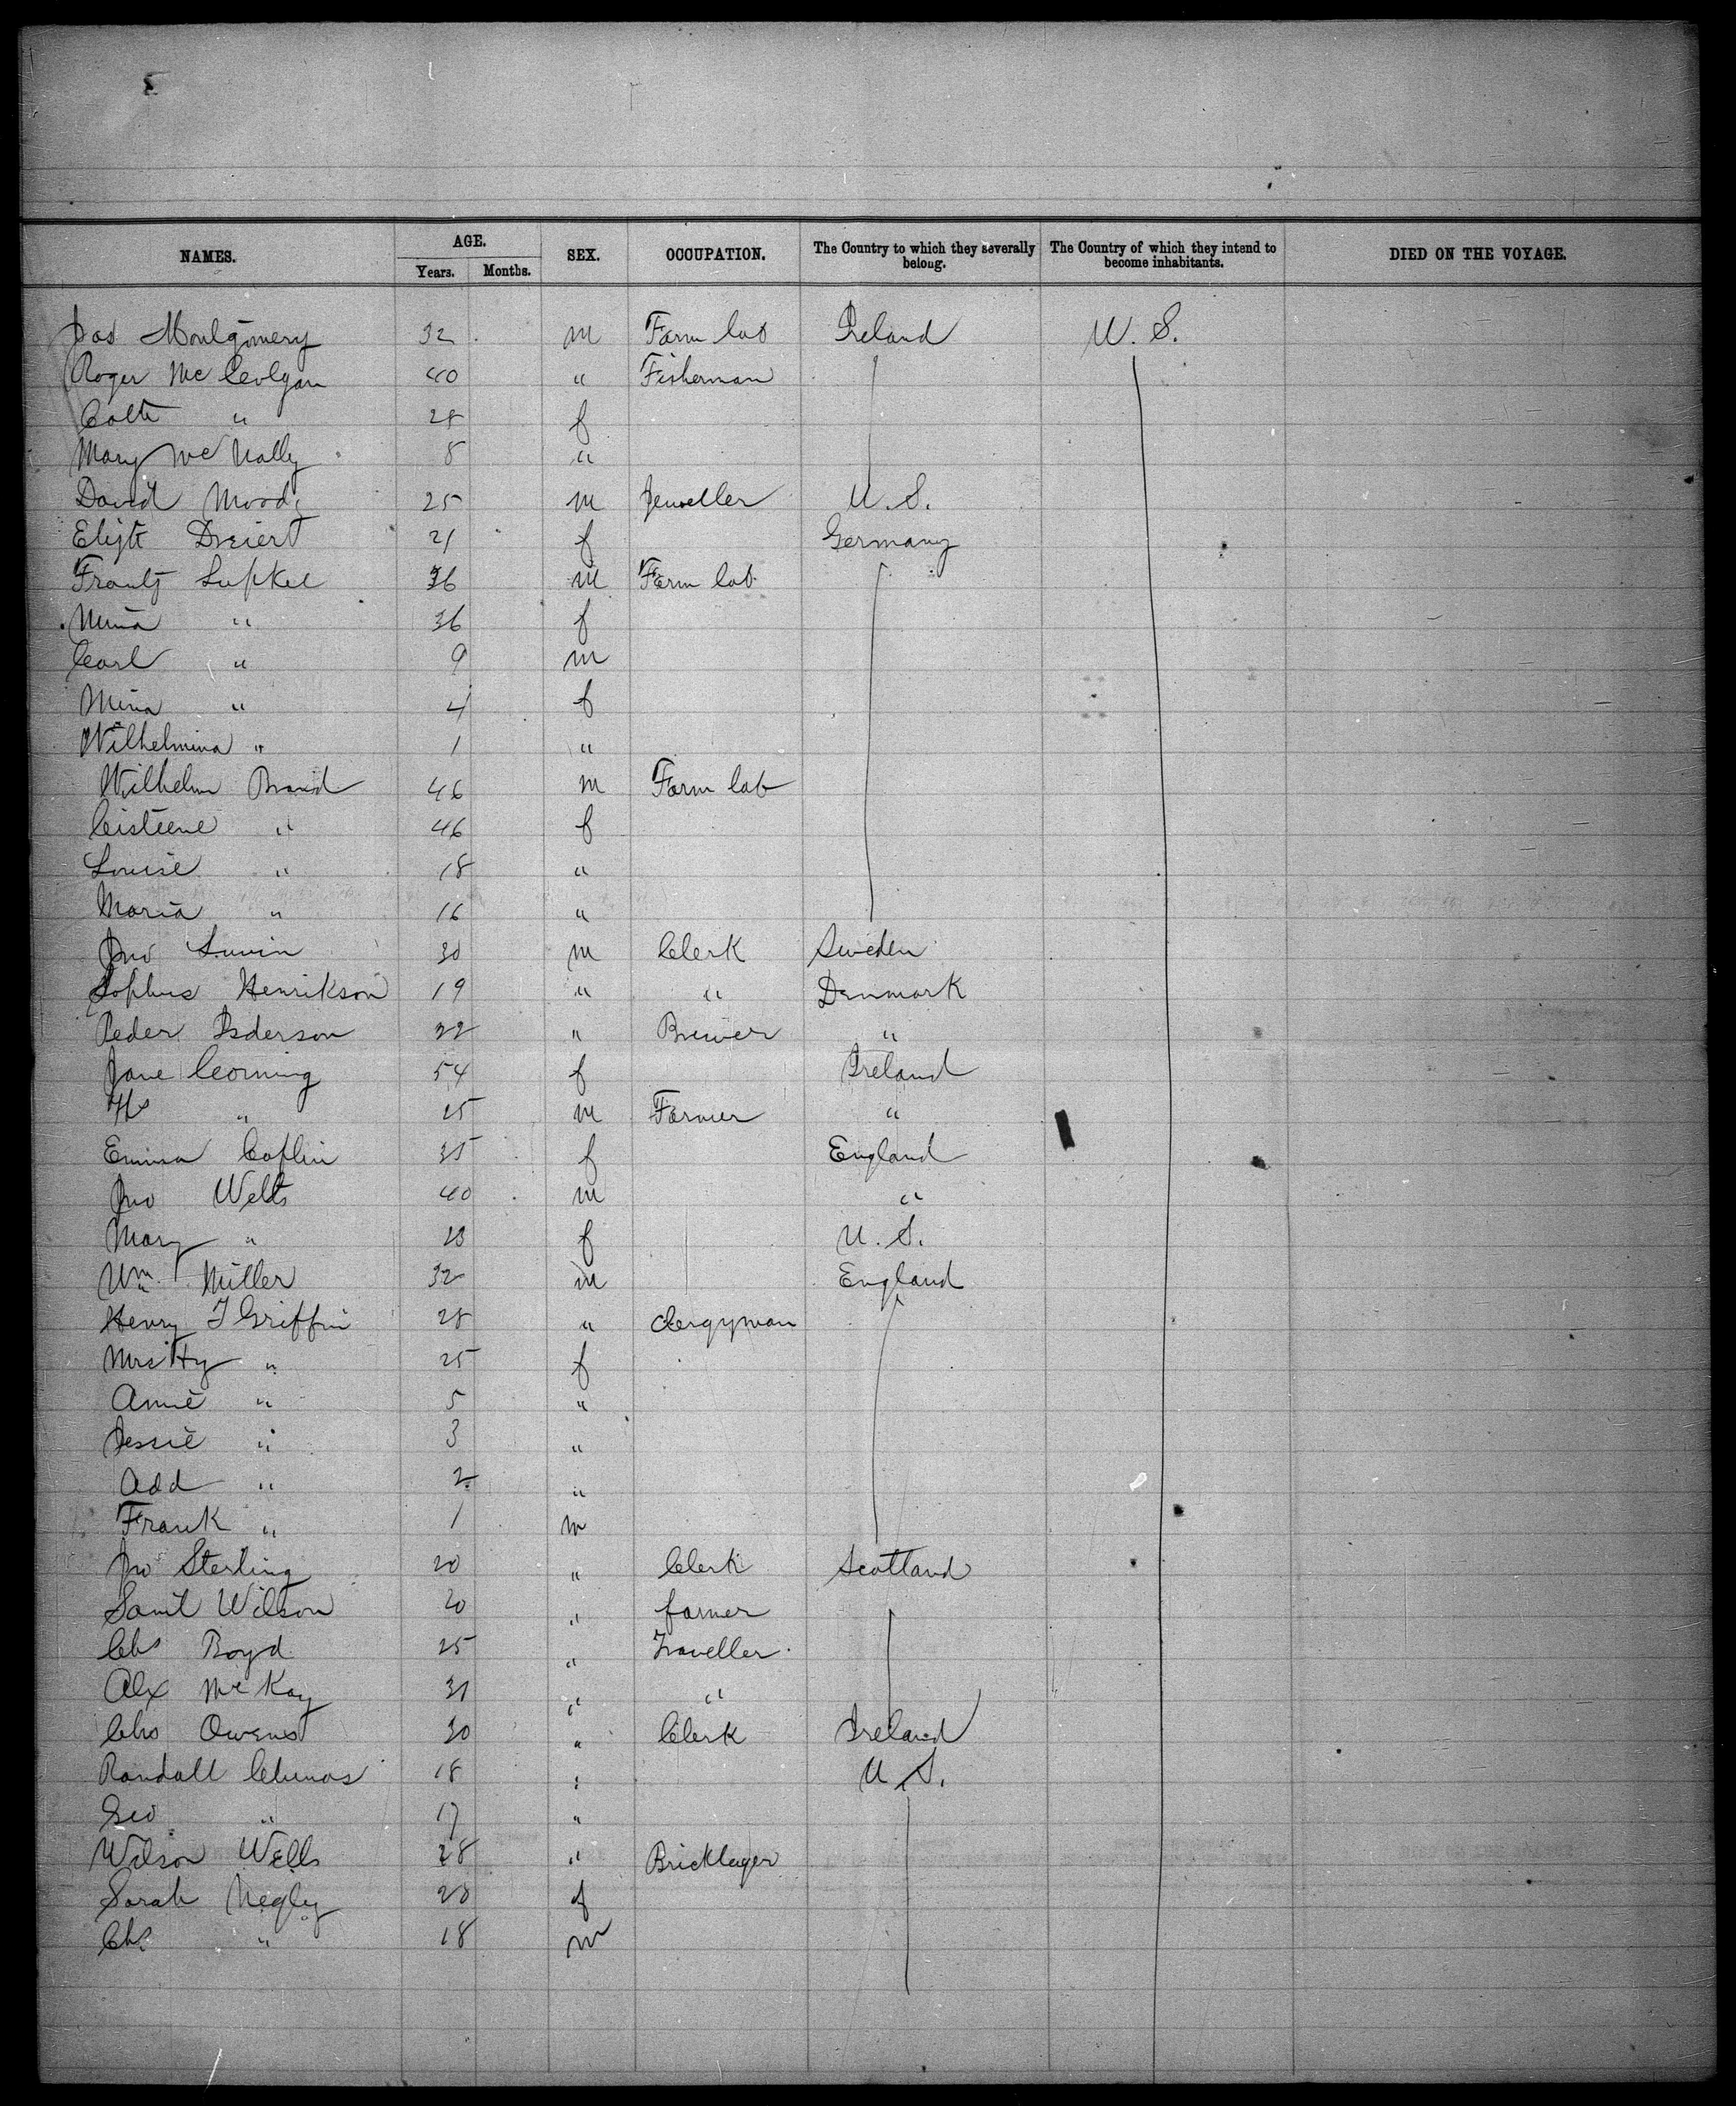 NAMES. AGE. SEX. OCCUPATION. The Country to which they severally belong. The Country of which they intend to become inhabitants. DIED ON THE VOYAGE.
Years. Months.
Jas Montgomery 32 m Farm lab Ireland U. S.
Roger McColgan 40 " Fisherman
Cath " 28 f
Mary McNally 8 "
David Moody 25 m Jeweller U. S.
Elizth Dreiert 21 f Germany
Frantz Lupkee 36 m Farm lab
Mina " 36 f
Carl " 9 m
Mina " 4 f
Wilhelmina " 1 "
Wilhelm Brand 46 m Farm lab
Cistiene " 46 f
Louise " 18 "
Maria " 16 "
Jno 30 m Clerk Sweden
Sophus Henrikson 19 " " Denmark
Peder 22 " Brewer "
Jane Corning 54 f Ireland
" 25 m Farmer "
Emma Coflin 35 f England
Jno Welts 40 m "
Mary " f U. S.
Wm Miller 32 m England
Henry J Griffin 28 " Clergyman
Mrs Hy " 25 f
Annie " 5 "
Jessie " 3 "
Add " 2 "
Frank " 1 m
Jno Sterling 20 " Clerk Scotland
Saml Wilson 20 " farmer
Chs Boyd 25 " Traveller
Alex McKay 31 " "
Chs Owens 30 " Clerk Ireland
Randall 18 " U. S.
Geo " 17 "
Wilson Wells 28 " Bricklayer
Sarah Negley 28 f
Chs " 18 m